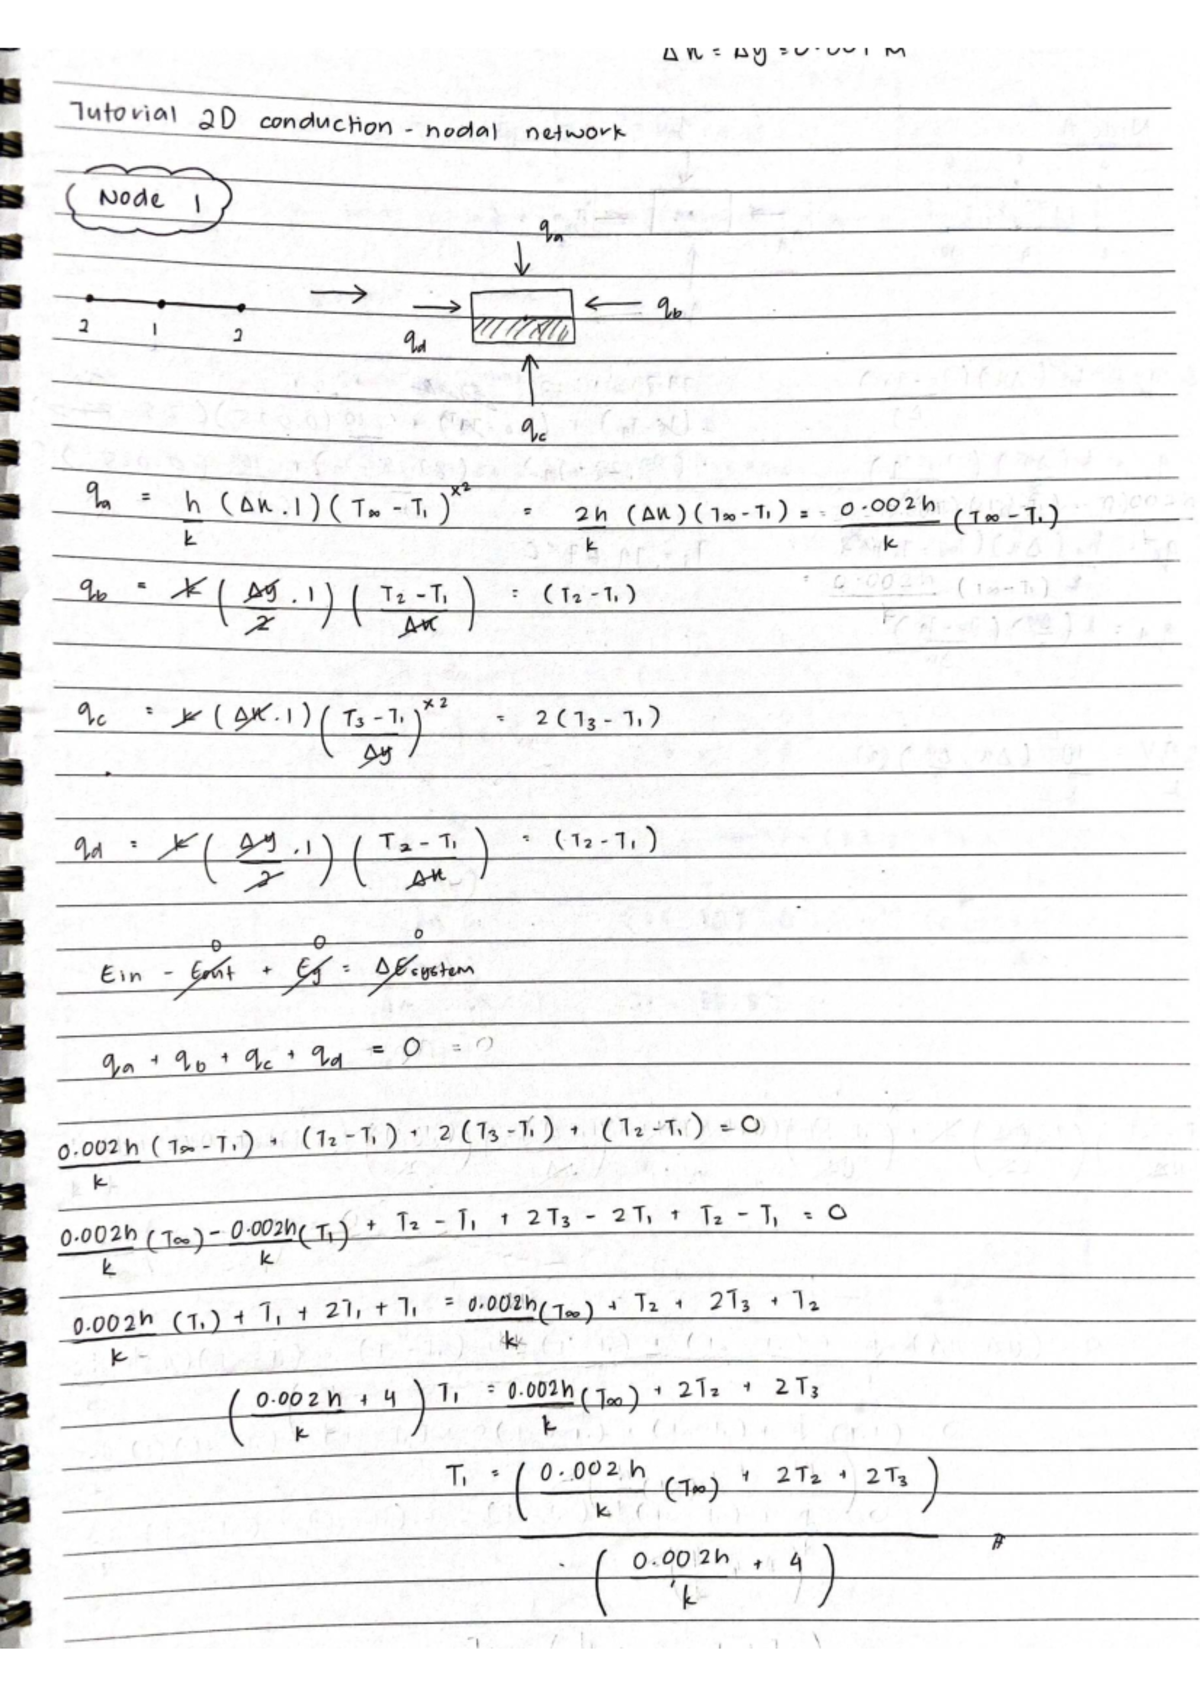 Δx = Δy = 0.001 M
Tutorial 2D conduction - nodal network
Node 1
qa
2 1 2
qd
qb
qc
qa = h/k (Δx . 1) (T∞ - T1) ×2 = 2h/k (Δx) (T∞ - T1) = 0.002h/k (T∞ - T1)
qb = k (Δy/2 . 1) (T2 - T1/Δx) = (T2 - T1)
qc = k (Δx . 1) (T3 - T1/Δy) ×2 = 2 (T3 - T1)
qd = k (Δy/2 . 1) (T2 - T1/Δx) = (T2 - T1)
0 0 0
Ein - Eout + Eg = ΔEsystem
qa + qb + qc + qd = 0 = 0
0.002h/k (T∞ - T1) + (T2 - T1) + 2 (T3 - T1) + (T2 - T1) = 0
0.002h/k (T∞) - 0.002h/k (T1) + T2 - T1 + 2T3 - 2T1 + T2 - T1 = 0
0.002h/k (T1) + T1 + 2T1 + T1 = 0.002h/k (T∞) + T2 + 2T3 + T2
(0.002h/k + 4) T1 = 0.002h/k (T∞) + 2T2 + 2T3
T1 = (0.002h/k (T∞) + 2T2 + 2T3)
(0.002h/k + 4) #